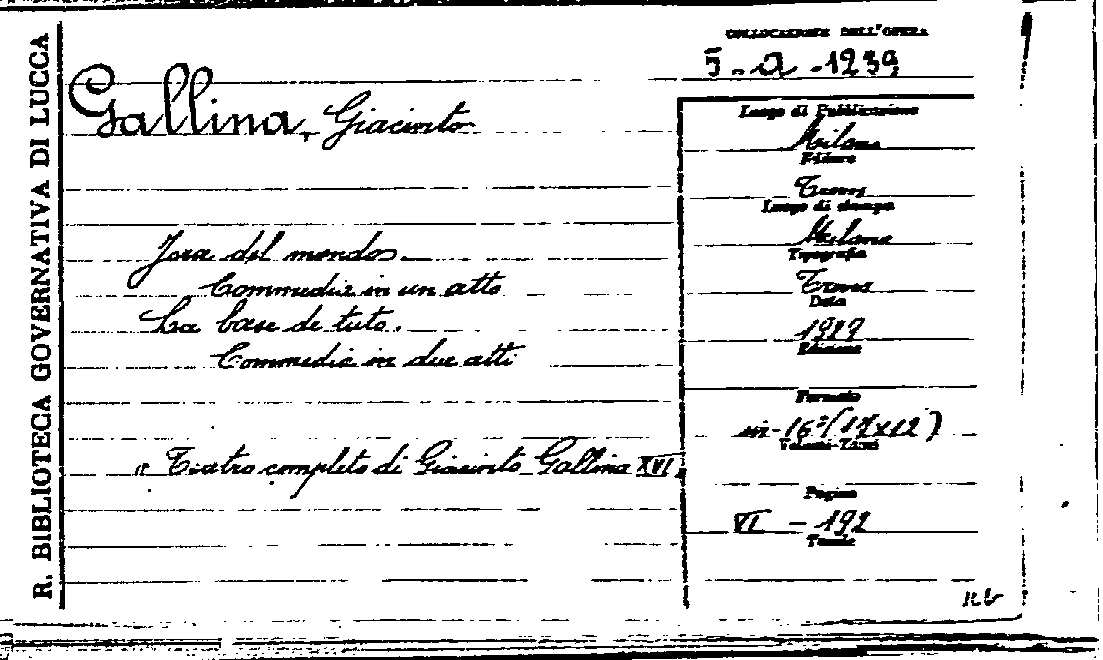 R. BIBLIOTECA GOVERNATIVA DI LUCCA
COLLOCAZIONE DELL'OPERA
5 - a - 1239
Gallina, Giacinto
del mondo.
Commedia in un atto
La base de tuto.
Commedia in due atti
" Teatro completo di Giacinto Gallina XVI
Luogo di Pubblicazione
Milano
Editore
Treves
Luogo di stampa
Milano
Tipografia
Treves
Data
Edizione
Formato
in-16° (17x12)
Volumi-Tomi
Pagine
VI - 192
Tavole